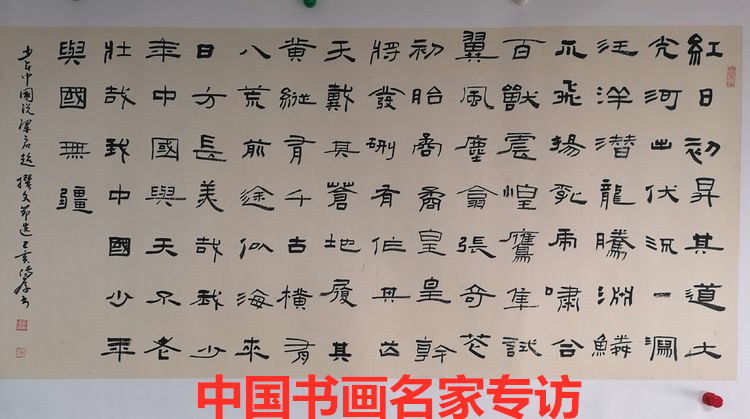 紅日初昇其道大
光河出伏流一瀉
汪洋潛龍騰淵鱗
爪飛揚乳虎嘯谷
百獸震惶鷹隼試
翼風塵翕張奇花
初胎矞矞皇皇幹
將發硎有作其芒
天戴其蒼地履其
黃縱有千古橫有
八荒前途似海來
日方長美哉我少
年中國與天不老
壯哉我中國少年
與國無疆
少年中國說梁启超撰文節選己亥書
中国书画名家专访